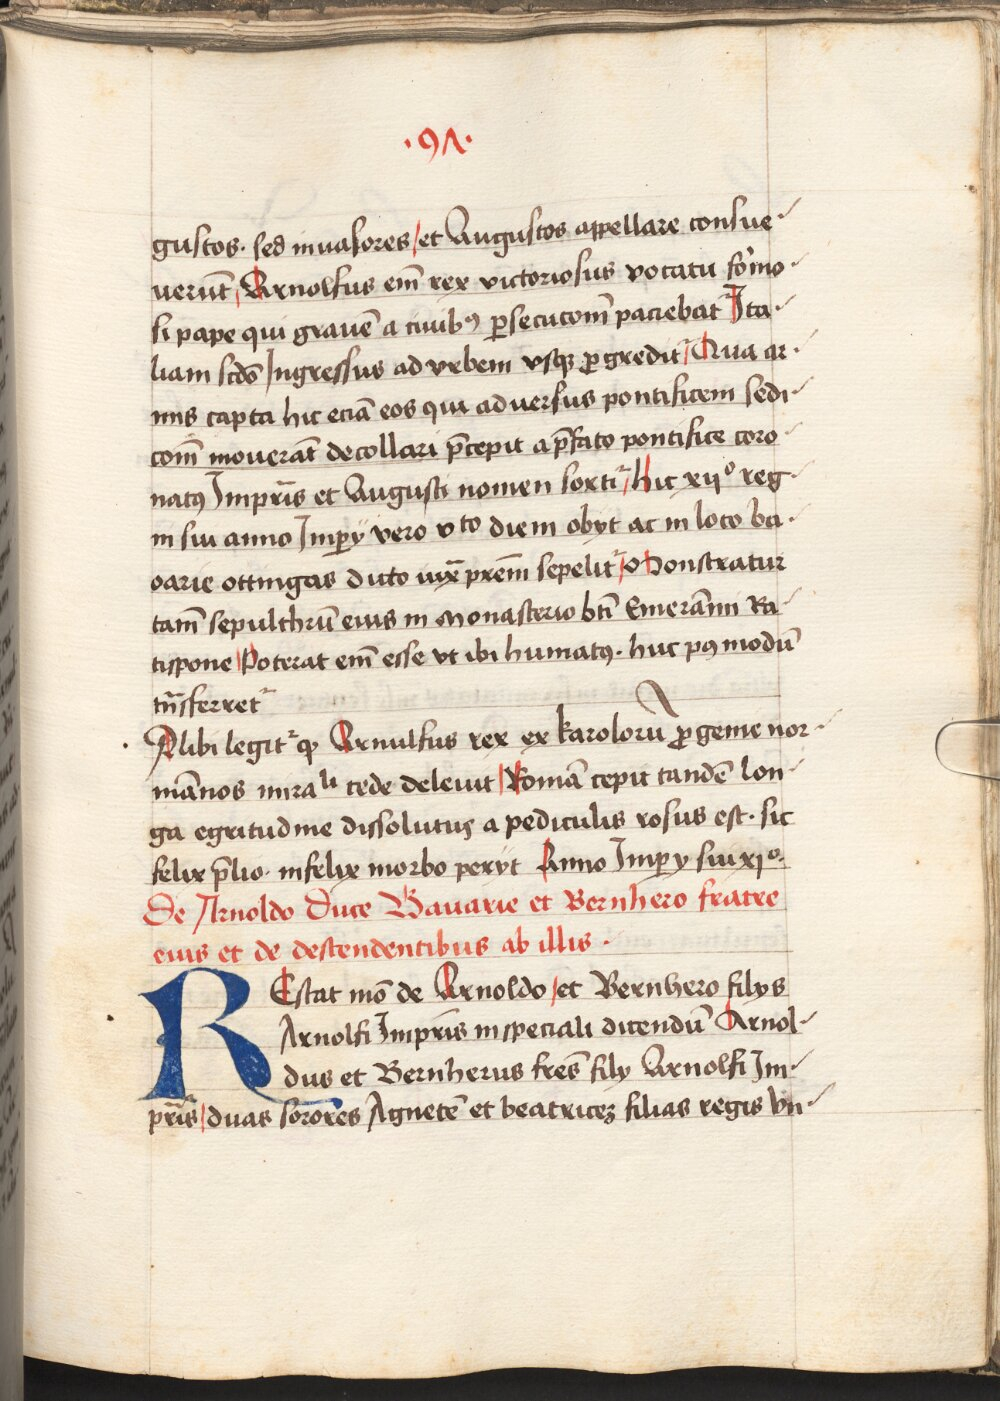 ·9Λ·
gustos· sed inuasores / et Augustos appellare consue-
uerūt / Arnolfus em̄ rex victoriosus vocatu formo-
si pape qui grauē a ciuibꝰ ꝑsecucōm̄ paciebat᷑ Ita-
liam scd̄o Ingressus ad vrbem vsqꝫ ꝓgredit᷑ / Qua ar-
mis capta hic eciā eos qui aduersus pontificem sedi-
com̄ mouerāt decollari p̄cepit a p̄fato pontifice coro-
natꝰ Impr̄is et Augusti nomen sortit᷑ / hic xijº reg-
ni sui anno Imꝑij vero vᵗᵒ diem obyt ac in loco ba-
oarie ottingas dicto iuxᵃ pr̄em̄ sepelit᷑ / Monstratur
tam̄ sepulthrū eius in Monasterio bt̄i Emeram̄i Ra-
tispone / Poterat em̄ esse vt ibi humatꝰ· huc pꝰmodū
tn̄sferret᷑
Alibi legit᷑ qꝫ Arnulfus rex ex karolorū ꝓgenie nor-
mānos miraˡⁱ cede deleuit / Romā cepit tandē lon-
ga egritudine dissolutus a pediculis rosus est· sic
felix p̄lio· infelix morbo peryt Anno Imꝑy sui xjº·
De Arnoldo Duce Bauarie et Bernhero fratre
eius et de descendentibus ab illis ·
REstat mō de Arnoldo / et Bernhero filys
Arnolfi Impr̄is in speciali dicendū Arnol-
dus et Bernherus frēs fily Arnolfi Im-
pr̄is / duas sorores Agnetē et beatricez filias regis vn-